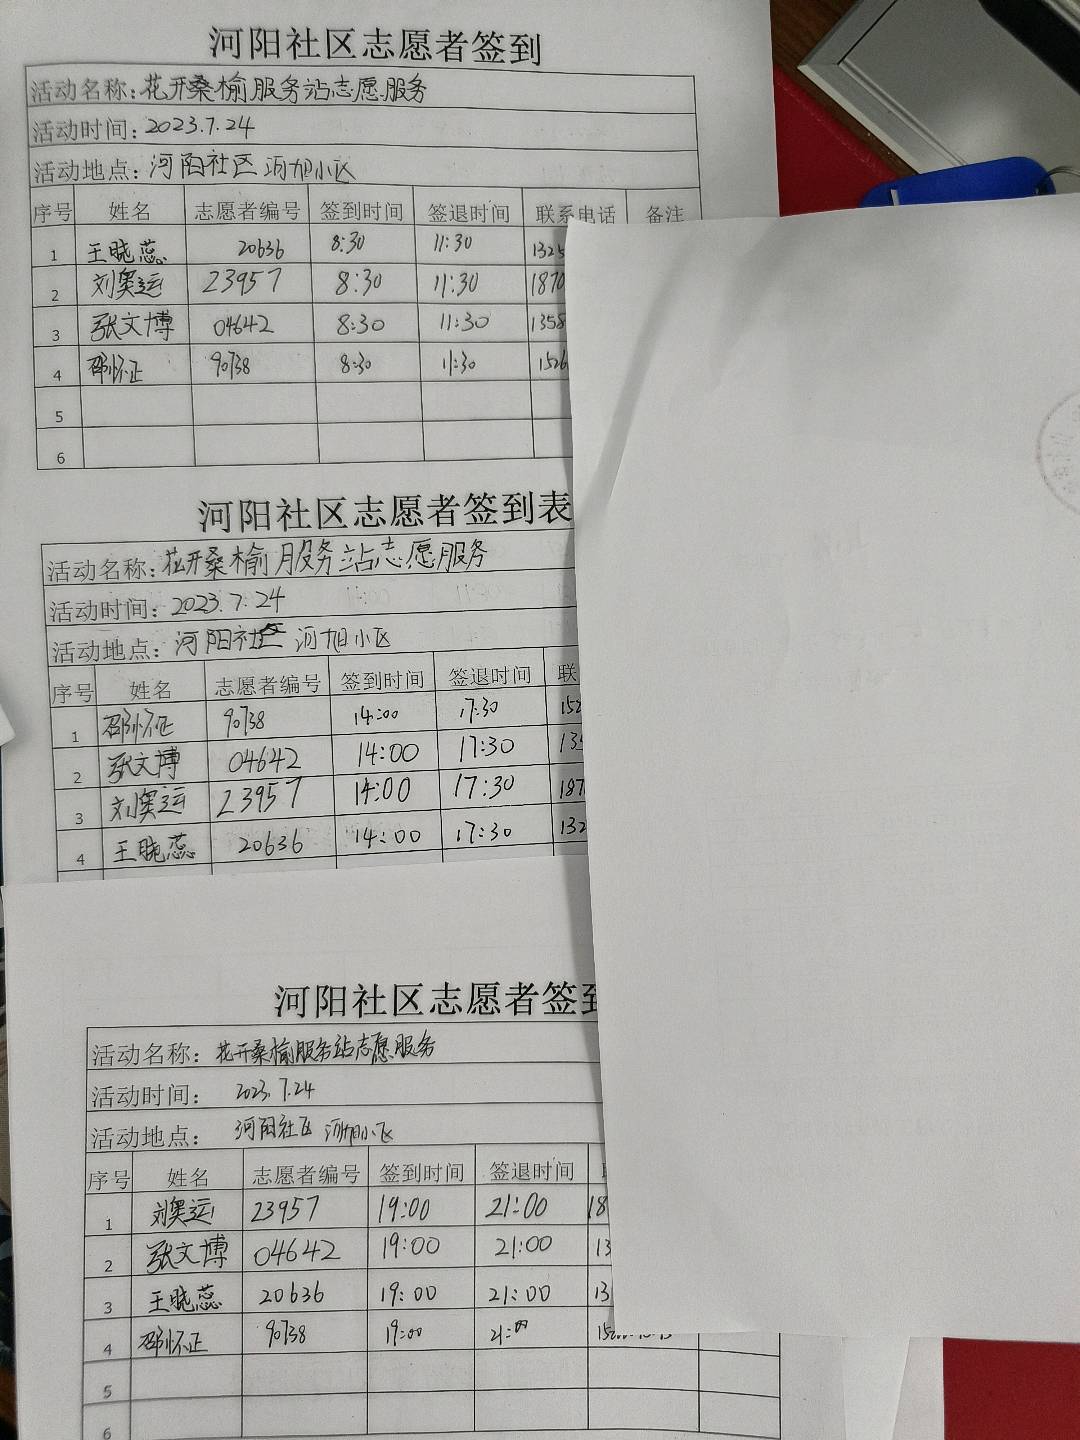 河阳社区志愿者签到
活动名称：花开桑榆服务站志愿服务
活动时间：2023.7.24
活动地点：河阳社区 河旭小区
序号 姓名 志愿者编号 签到时间 签退时间 联系电话 备注
1 王晓蕊 20636 8:30 11:30 1325
2 刘奥运 23957 8:30 11:30 1870
3 张文博 04642 8:30 11:30 1358
4 邵怀正 90738 8:30 11:30 1526
5
6
河阳社区志愿者签到表
活动名称：花开桑榆服务站志愿服务
活动时间：2023.7.24
活动地点：河阳社区 河旭小区
序号 姓名 志愿者编号 签到时间 签退时间 联
1 邵怀正 90738 14:00 17:30 152
2 张文博 04642 14:00 17:30 135
3 刘奥运 23957 14:00 17:30 187
4 王晓蕊 20636 14:00 17:30 132
河阳社区志愿者签到
活动名称：花开桑榆服务站志愿服务
活动时间：2023.7.24
活动地点：河阳社区 河旭小区
序号 姓名 志愿者编号 签到时间 签退时间
1 刘奥运 23957 19:00 21:00 18
2 张文博 04642 19:00 21:00 13
3 王晓蕊 20636 19:00 21:00 13
4 邵怀正 90738 19:00 21:00
5
6